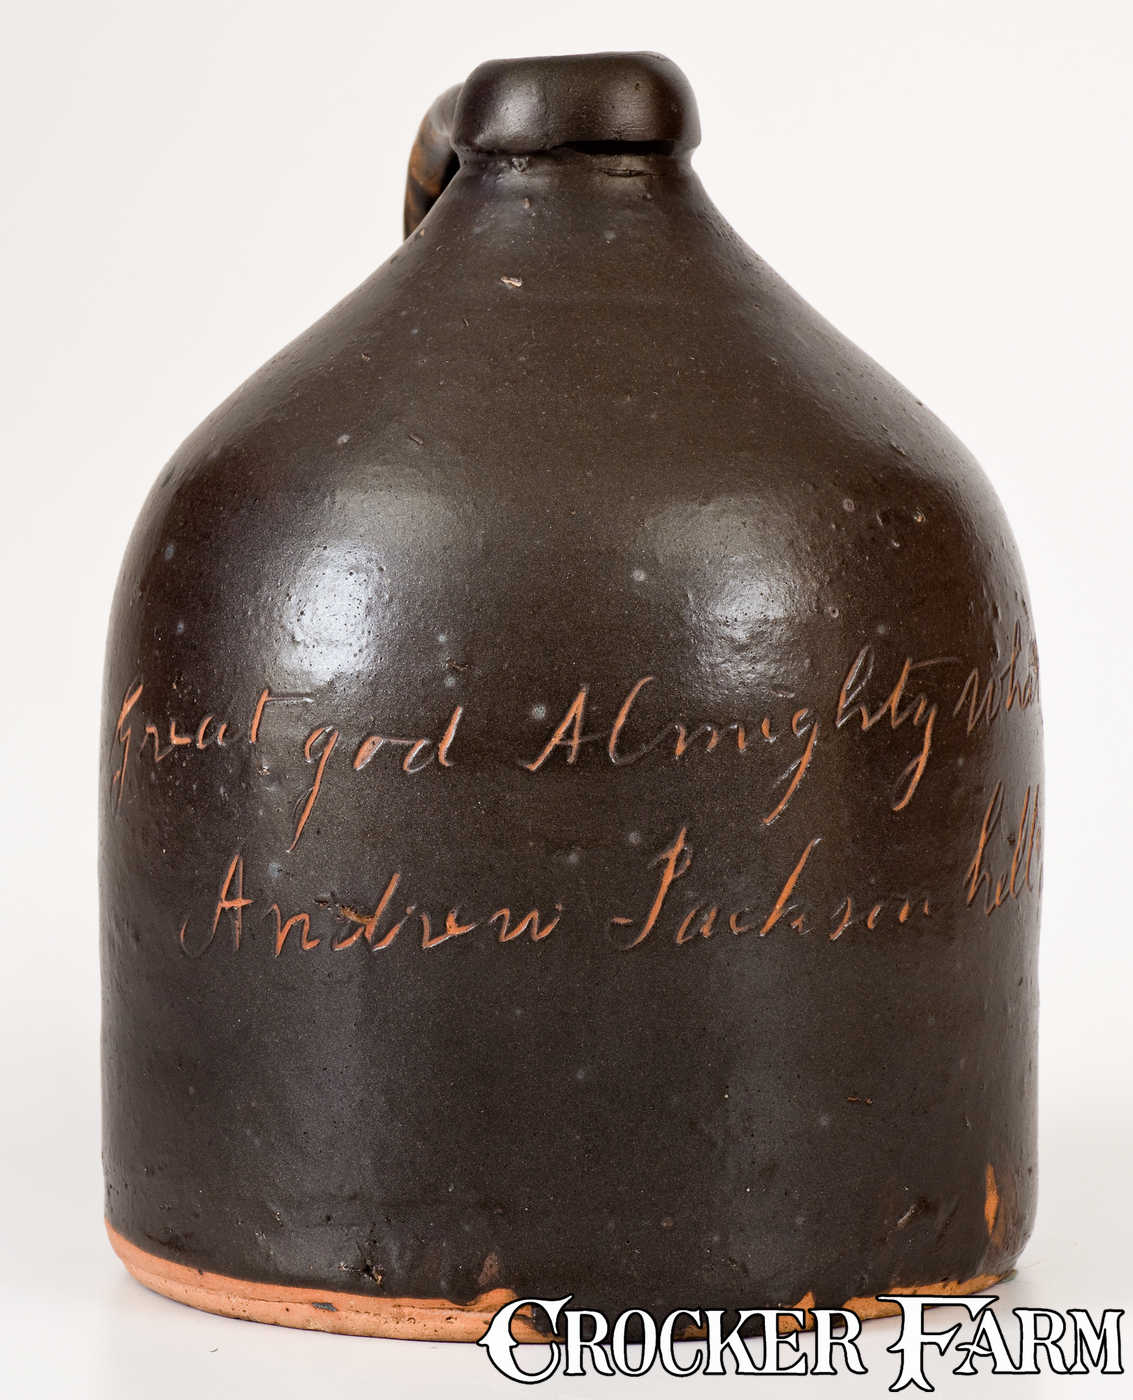 Great god Almighty what
Andrew Jackson hell
CROCKER FARM